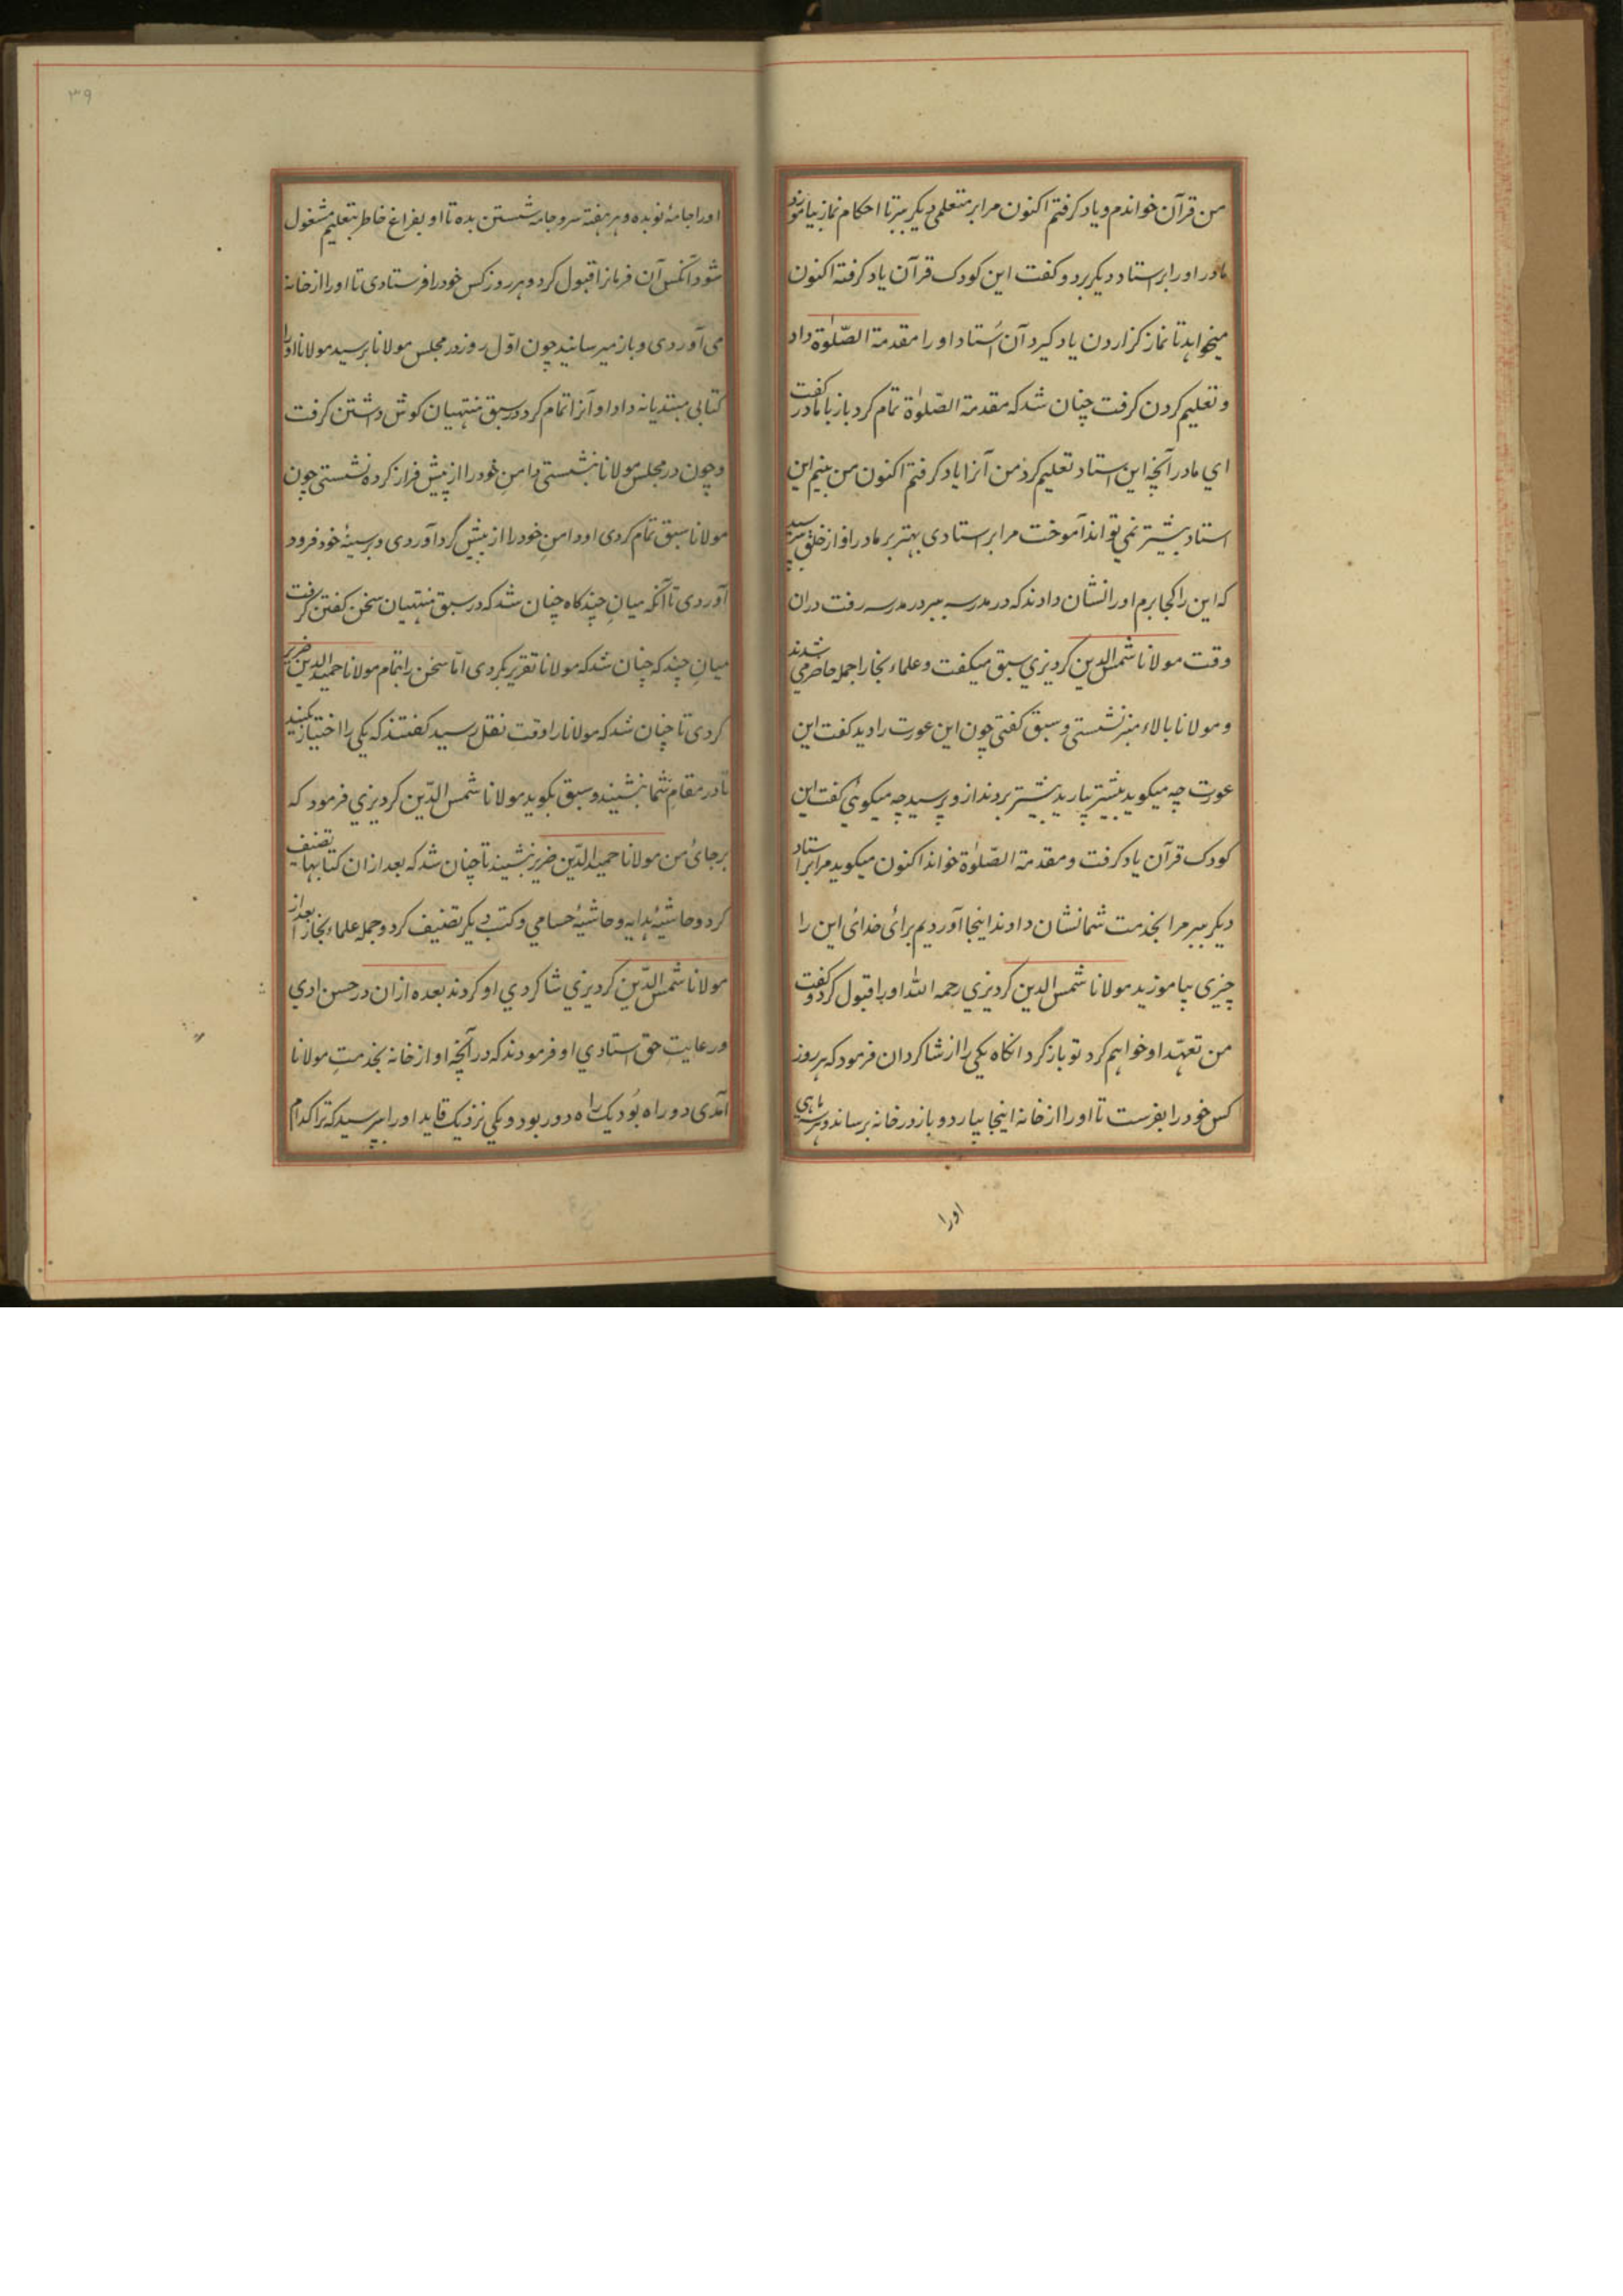 من قرآن خواندم و یاد گرفتم اکنون مرا بر متعلمی دیگر ببر تا احکام نماز بیاموزد
مادر او را بر استاد دیگر برد و گفت این کودک قرآن یاد گرفته اکنون
میخواهد تا نماز گزاردن یاد گیرد آن اُستاد او را مقدمة الصّلوٰة داد
و تعلیم کردن گرفت چنان شد که مقدمة الصّلوٰة تمام کرد باز با مادر گفت
ای مادر آنچه این استاد تعلیم کرد من آنرا یاد گرفتم اکنون من بینم این
استاد بیشتر نمی تواند آموخت مرا بر استادی بهتر بر مادر او از خلق پرسید
که این را کجا برم او را نشان دادند که در مدرسه ببر در مدرسه رفت دران
وقت مولانا شمس الدین کردیزی سبق میگفت و علماء بخارا جمله حاضر می شدند
و مولانا بالاء منبر نشستی و سبق گفتی چون این عورت را دید گفت این
عورت چه میگوید پیشتر بیارید پیشتر بردند از و پرسید چه میگوئی گفت این
کودک قرآن یاد گرفت و مقدمة الصّلوٰة خواند اکنون میگوید مرا بر استاد
دیگر ببر مرا بخدمت شما نشان دادند اینجا آوردیم برائ خدائ این را
چیزی بیاموزید مولانا شمس الدین کردیزی رحمه الله او را قبول کرد و گفت
من تعهّد او خواهم کرد تو باز گرد انگاه یکی را از شاگردان فرمود که هر روز
کس خود را بفرست تا او را از خانه اینجا بیارد و باز در خانه برساند و هر ماهی
اورا
۳۹
او را جامهٔ نو بده و هر هفته سر و جامه شستن بده تا او بفراغ خاطر بتعلیم مشغول
شود آنکس آن فرمانرا قبول کرد و هر روز کس خود را فرستادی تا او را از خانه
می آوردی و باز میرسانید چون اوّل روز در مجلس مولانا برسید مولانا او را
کتابی مبتدیانه داد او آنرا تمام کرد در سبق منتهیان گوش داشتن گرفت
و چون در مجلس مولانا بنشستی دامن خود را از پیش فراز کرده نشستی چون
مولانا سبق تمام کردی او دامن خود را از پیش گرد آوردی و بر سینهٔ خود فرود
آوردی تا آنکه میان چند گاه چنان شد که در سبق منتهیان سخن گفتن گرفت
میان چند گه چنان شد که مولانا تقریر بکردی امّا سخن را بتمام مولانا حمید الدین ضریر
کردی تا چنان شد که مولانا را وقت نقل رسید گفتند که یکی را اختیار بکنید
تا در مقام شما بنشیند و سبق بگوید مولانا شمس الدّین کردیزی فرمود که
بر جائ من مولانا حمید الدّین ضریر بنشیند تا چنان شد که بعد از ان کتابها تصنیف
کرد و حاشیهٔ هدایه و حاشیهٔ حسامی و کتب دیگر تصنیف کرد و جمله علماء بخارا بعد از
مولانا شمس الدّین کردیزی شاگردی او کردند بعده ازان در حسن ادی
و رعایت حق استادی او فرمودند که در آنچه او از خانه بخدمت مولانا
آمدی دو راه بُود یک راه دور بود و یکی نزدیک قاید او را پرسید که ترا کدام